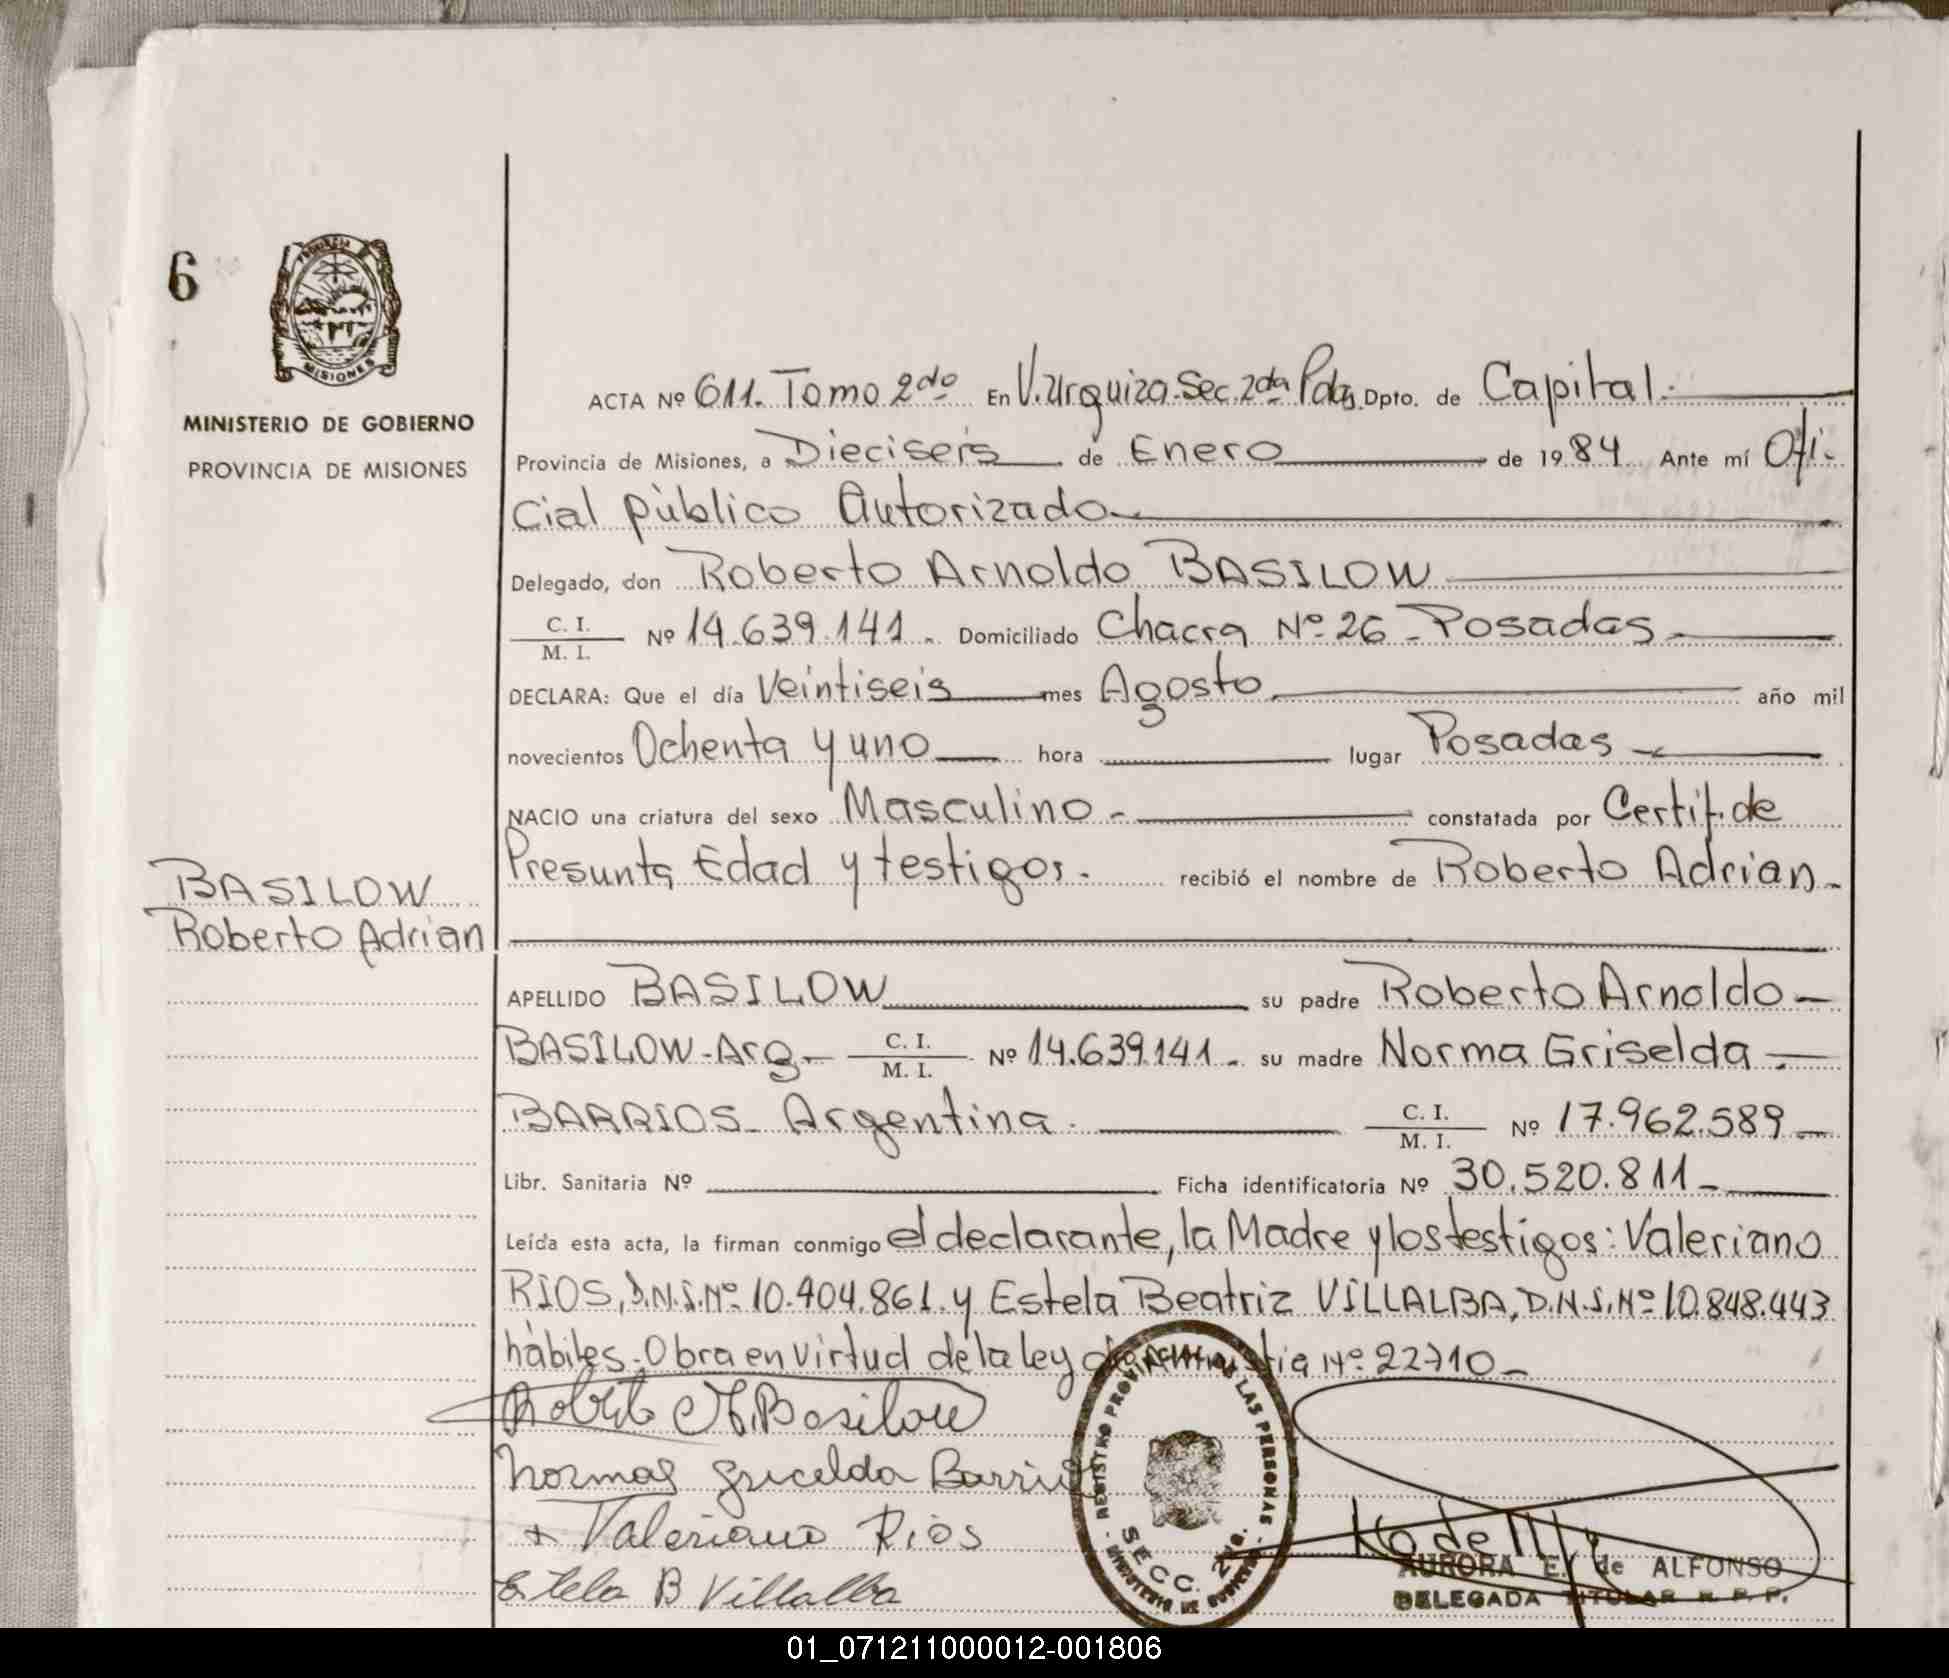 6
PROVINCIA
MISIONES
MINISTERIO DE GOBIERNO
PROVINCIA DE MISIONES
ACTA Nº 611. Tomo 2do En V. Urquiza. Sec. 2da Pdas. Dpto. de Capital.
Provincia de Misiones, a Dieciseis de Enero de 1984 Ante mí Ofi-
cial público Autorizado
Delegado, don Roberto Arnoldo BASILOW
C. I.
M. I.
Nº 14.639.141 - Domiciliado Chacra Nº 26 - Posadas -
DECLARA: Que el día Veintiseis mes Agosto año mil
novecientos Ochenta y uno hora lugar Posadas -
NACIO una criatura del sexo Masculino - constatada por Certif. de
Presunta Edad y testigos. recibió el nombre de Roberto Adrian -
BASILOW
Roberto Adrian
APELLIDO BASILOW su padre Roberto Arnoldo -
BASILOW - Arg. - C. I.
M. I.
Nº 14.639.141 - su madre Norma Griselda -
BARRIOS - Argentina. C. I.
M. I.
Nº 17.962.589 -
Libr. Sanitaria Nº Ficha identificatoria Nº 30.520.811 -
Leída esta acta, la firman conmigo el declarante, la Madre y los testigos: Valeriano
RIOS, D.N.I. Nº 10.404.861 y Estela Beatriz VILLALBA, D.N.I. Nº 10.848.443
hábiles. Obra en virtud de la ley de Amnistia Nº 22710 -
Roberto A. Basilow
Norma Gricelda Barrios
Valeriano Rios
Estela B Villalba
REGISTRO PROVINCIAL DE LAS PERSONAS
SECC. 2da.
MINISTERIO DE GOBIERNO
AURORA E. de ALFONSO
DELEGADA TITULAR R. P. P.
01_071211000012-001806